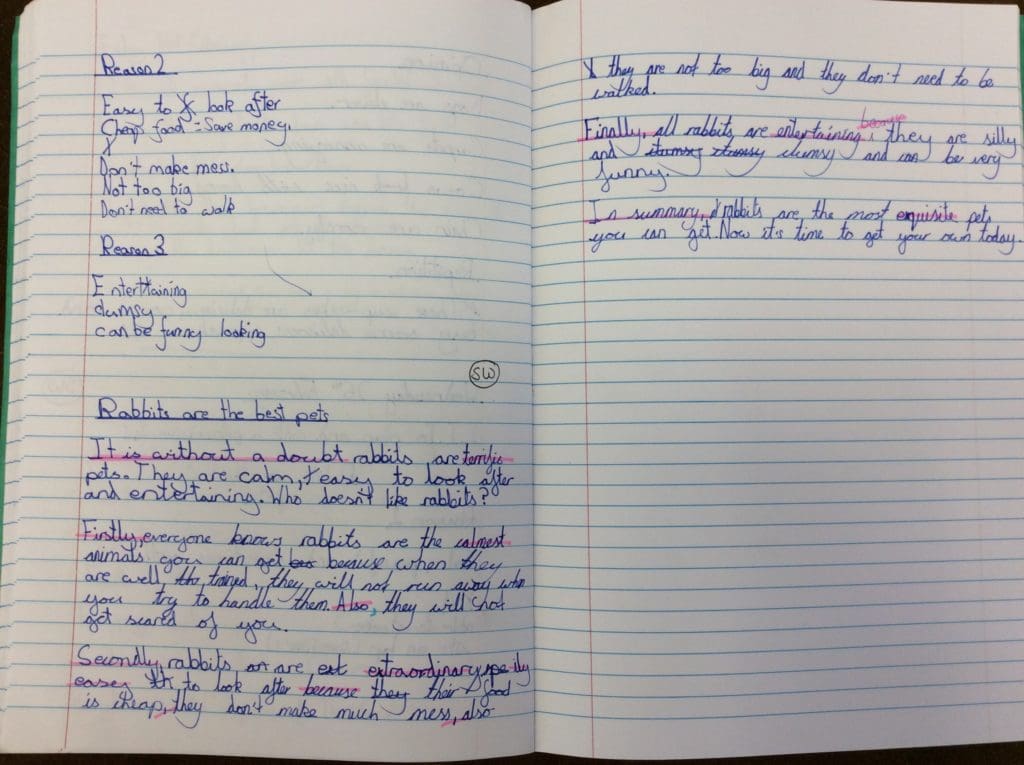 Reason 2
Easy to look after
Cheap food = Save money.
Don't make mess.
Not too big
Don't need to walk
Reason 3
Enterttaining
clumsy
can be funny looking
SW
Rabbits are the best pets
It is without a doubt rabbits are terrific
pets. They are calm, easy to look after
and entertaining. Who doesn't like rabbits?
Firstly, everyone knows rabbits are the calmest
animals you can get because when they
are well trained, they will not run away when
you try to handle them. Also, they will not
get scared of you.
Secondly, rabbits are extraordinary
easy to look after because they their food
is cheap, they don't make much mess, also
they are not too big and they don't need to be
walked.
Finally, all rabbits are entertaining because they are silly
and clumsy and can be very
funny.
In summary, rabbits are the most exquisite pets
you can get. Now it's time to get your own today.